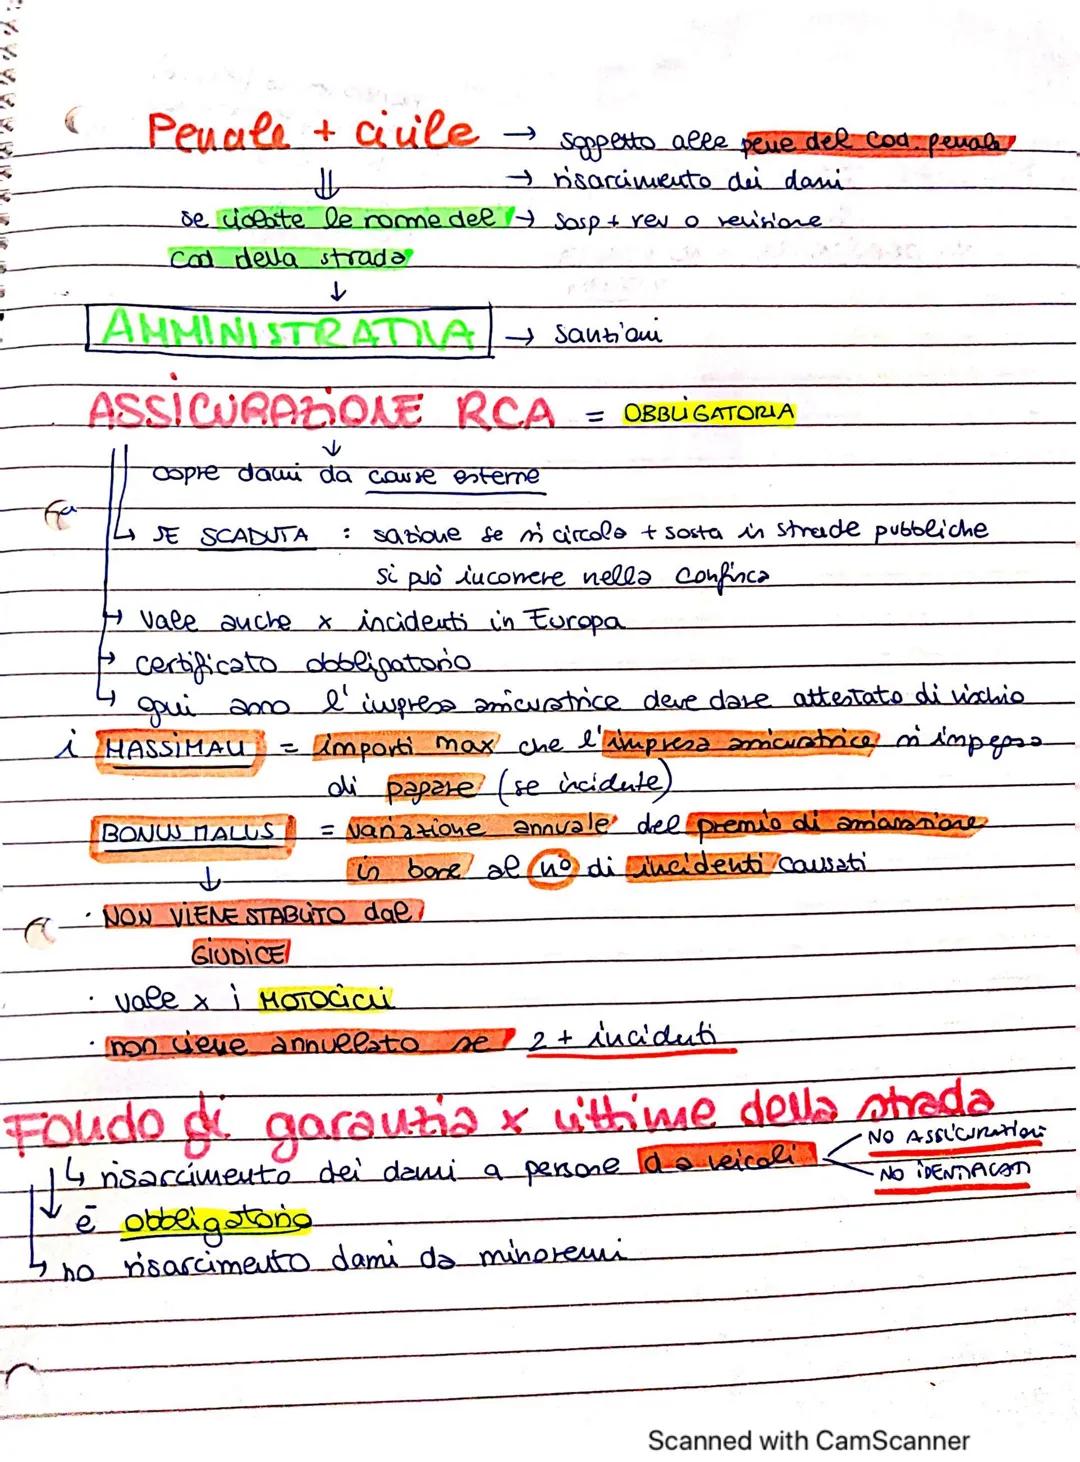 Penale + civile → soggetto alle pene del cod. penale
⇓ → risarcimento dei danni
se violate le norme del → sosp + rev o revisione
cod della strada
↓
AMMINISTRATIVA → sanzioni
ASSICURAZIONE RCA = OBBLIGATORIA
↓
copre danni da cause esterne
↳ SE SCADUTA : sazione se si circola + sosta in strade pubbliche
si può incorrere nella confisca
→ vale anche x incidenti in Europa
→ certificato obbligatorio
↳ ogni anno l'impresa assicuratrice deve dare attestato di rischio
i MASSIMALI = importi max che l'impresa assicuratrice si impegna
di pagare (se incidente)
BONUS MALUS = variazione annuale del premio di assicurazione
↓ in base al n° di incidenti causati
· NON VIENE STABILITO dal
GIUDICE
· vale x i MOTOCICLI
· non viene annullato se 2 + incidenti
Fondo di garanzia x vittime della strada
↳ risarcimento dei danni a persone da veicoli NO ASSICURATIONI
NO IDENTIFICATI
↓ è obbligatorio
↳ no risarcimento danni da minorenni
Scanned with CamScanner